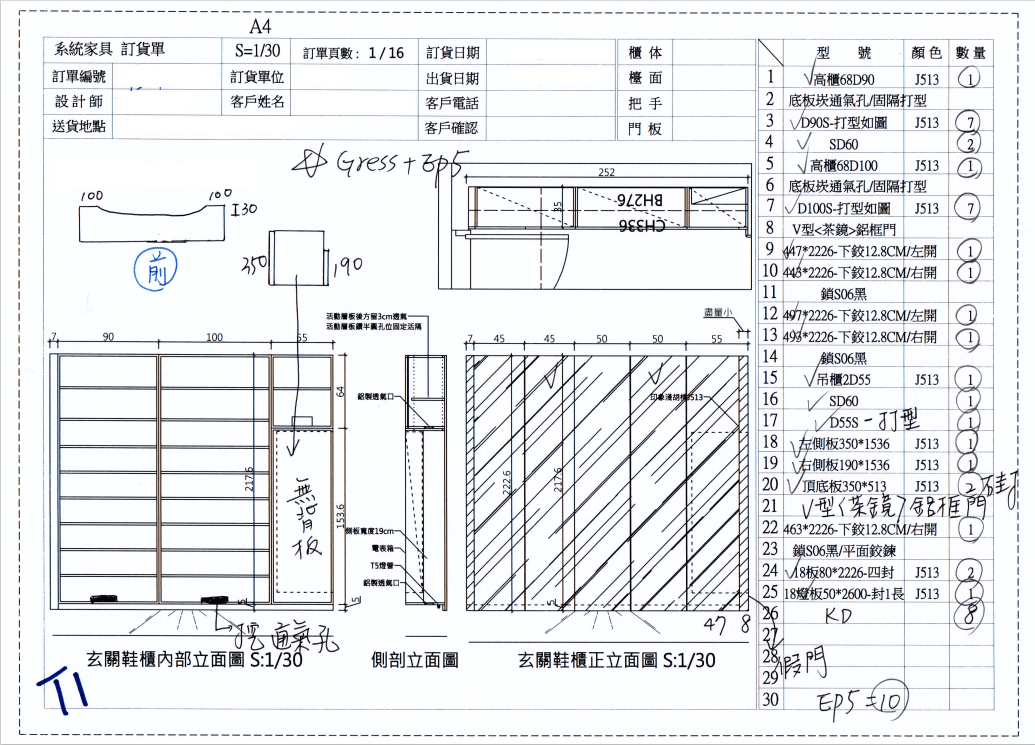 A4
系統家具 訂貨單 S=1/30 訂單頁數: 1 / 16 訂貨日期 櫃 体
訂單編號 訂貨單位 出貨日期 檯 面
設計師 客戶姓名 客戶電話 把 手
送貨地點 客戶確認 門 板
型 號 顏色 數量
1 高櫃68D90 J513 1
2 底板崁通氣孔/固隔打型
3 D90S-打型如圖 J513 7
4 SD60 2
5 高櫃68D100 J513 1
6 底板崁通氣孔/固隔打型
7 D100S-打型如圖 J513 7
8 V型<茶鏡>鋁框門
9 447*2226-下鉸12.8CM/左開 1
10 443*2226-下鉸12.8CM/右開 1
11 鎖S06黑
12 497*2226-下鉸12.8CM/左開 1
13 493*2226-下鉸12.8CM/右開 1
14 鎖S06黑
15 吊櫃2D55 J513 1
16 SD60 1
17 D55S-打型 1
18 左側板350*1536 J513 1
19 右側板190*1536 J513 1
20 頂底板350*513 J513 2
21 V型<茶鏡>鋁框門
22 463*2226-下鉸12.8CM/右開 1
23 鎖S06黑/平面鉸鍊
24 18板80*2226-四封 J513 2
25 18燈板50*2600-封1長 J513 1
26 KD 8
27
28
29
30
假門
EP5=10
Gress+Ep5
100 100
30
前
350 190
252
35
BH276
CH336
盡量小
活動層板後方留3cm透氣
活動層板鑽半圓孔位固定活隔
7 90 100 55
64
217.6
153.6
5 5
無背板
挖通氣孔
鋁製透氣口
側板寬度19cm
電表箱
T5燈管
鋁製透氣口
7 45 45 50 50 55
印象淺胡桃J513
222.6
217.6
5
47 8
玄關鞋櫃內部立面圖 S:1/30
側剖立面圖
玄關鞋櫃正立面圖 S:1/30
T1